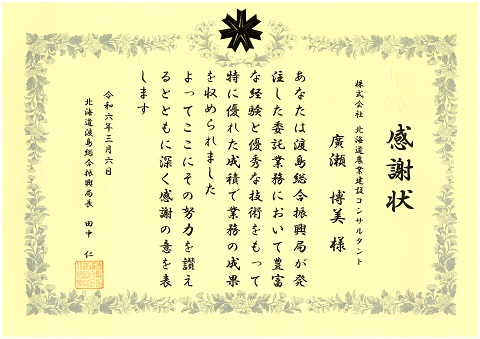 感謝状
株式会社 北海道農業建設コンサルタント
廣瀬 博美 様
あなたは渡島総合振興局が発
注した委託業務において豊富
な経験と優秀な技術をもって
特に優れた成績で業務の成果
を収められました
よってここにその努力を讃え
るとともに深く感謝の意を表
します
令和六年三月六日
北海道渡島総合振興局長 田中 仁